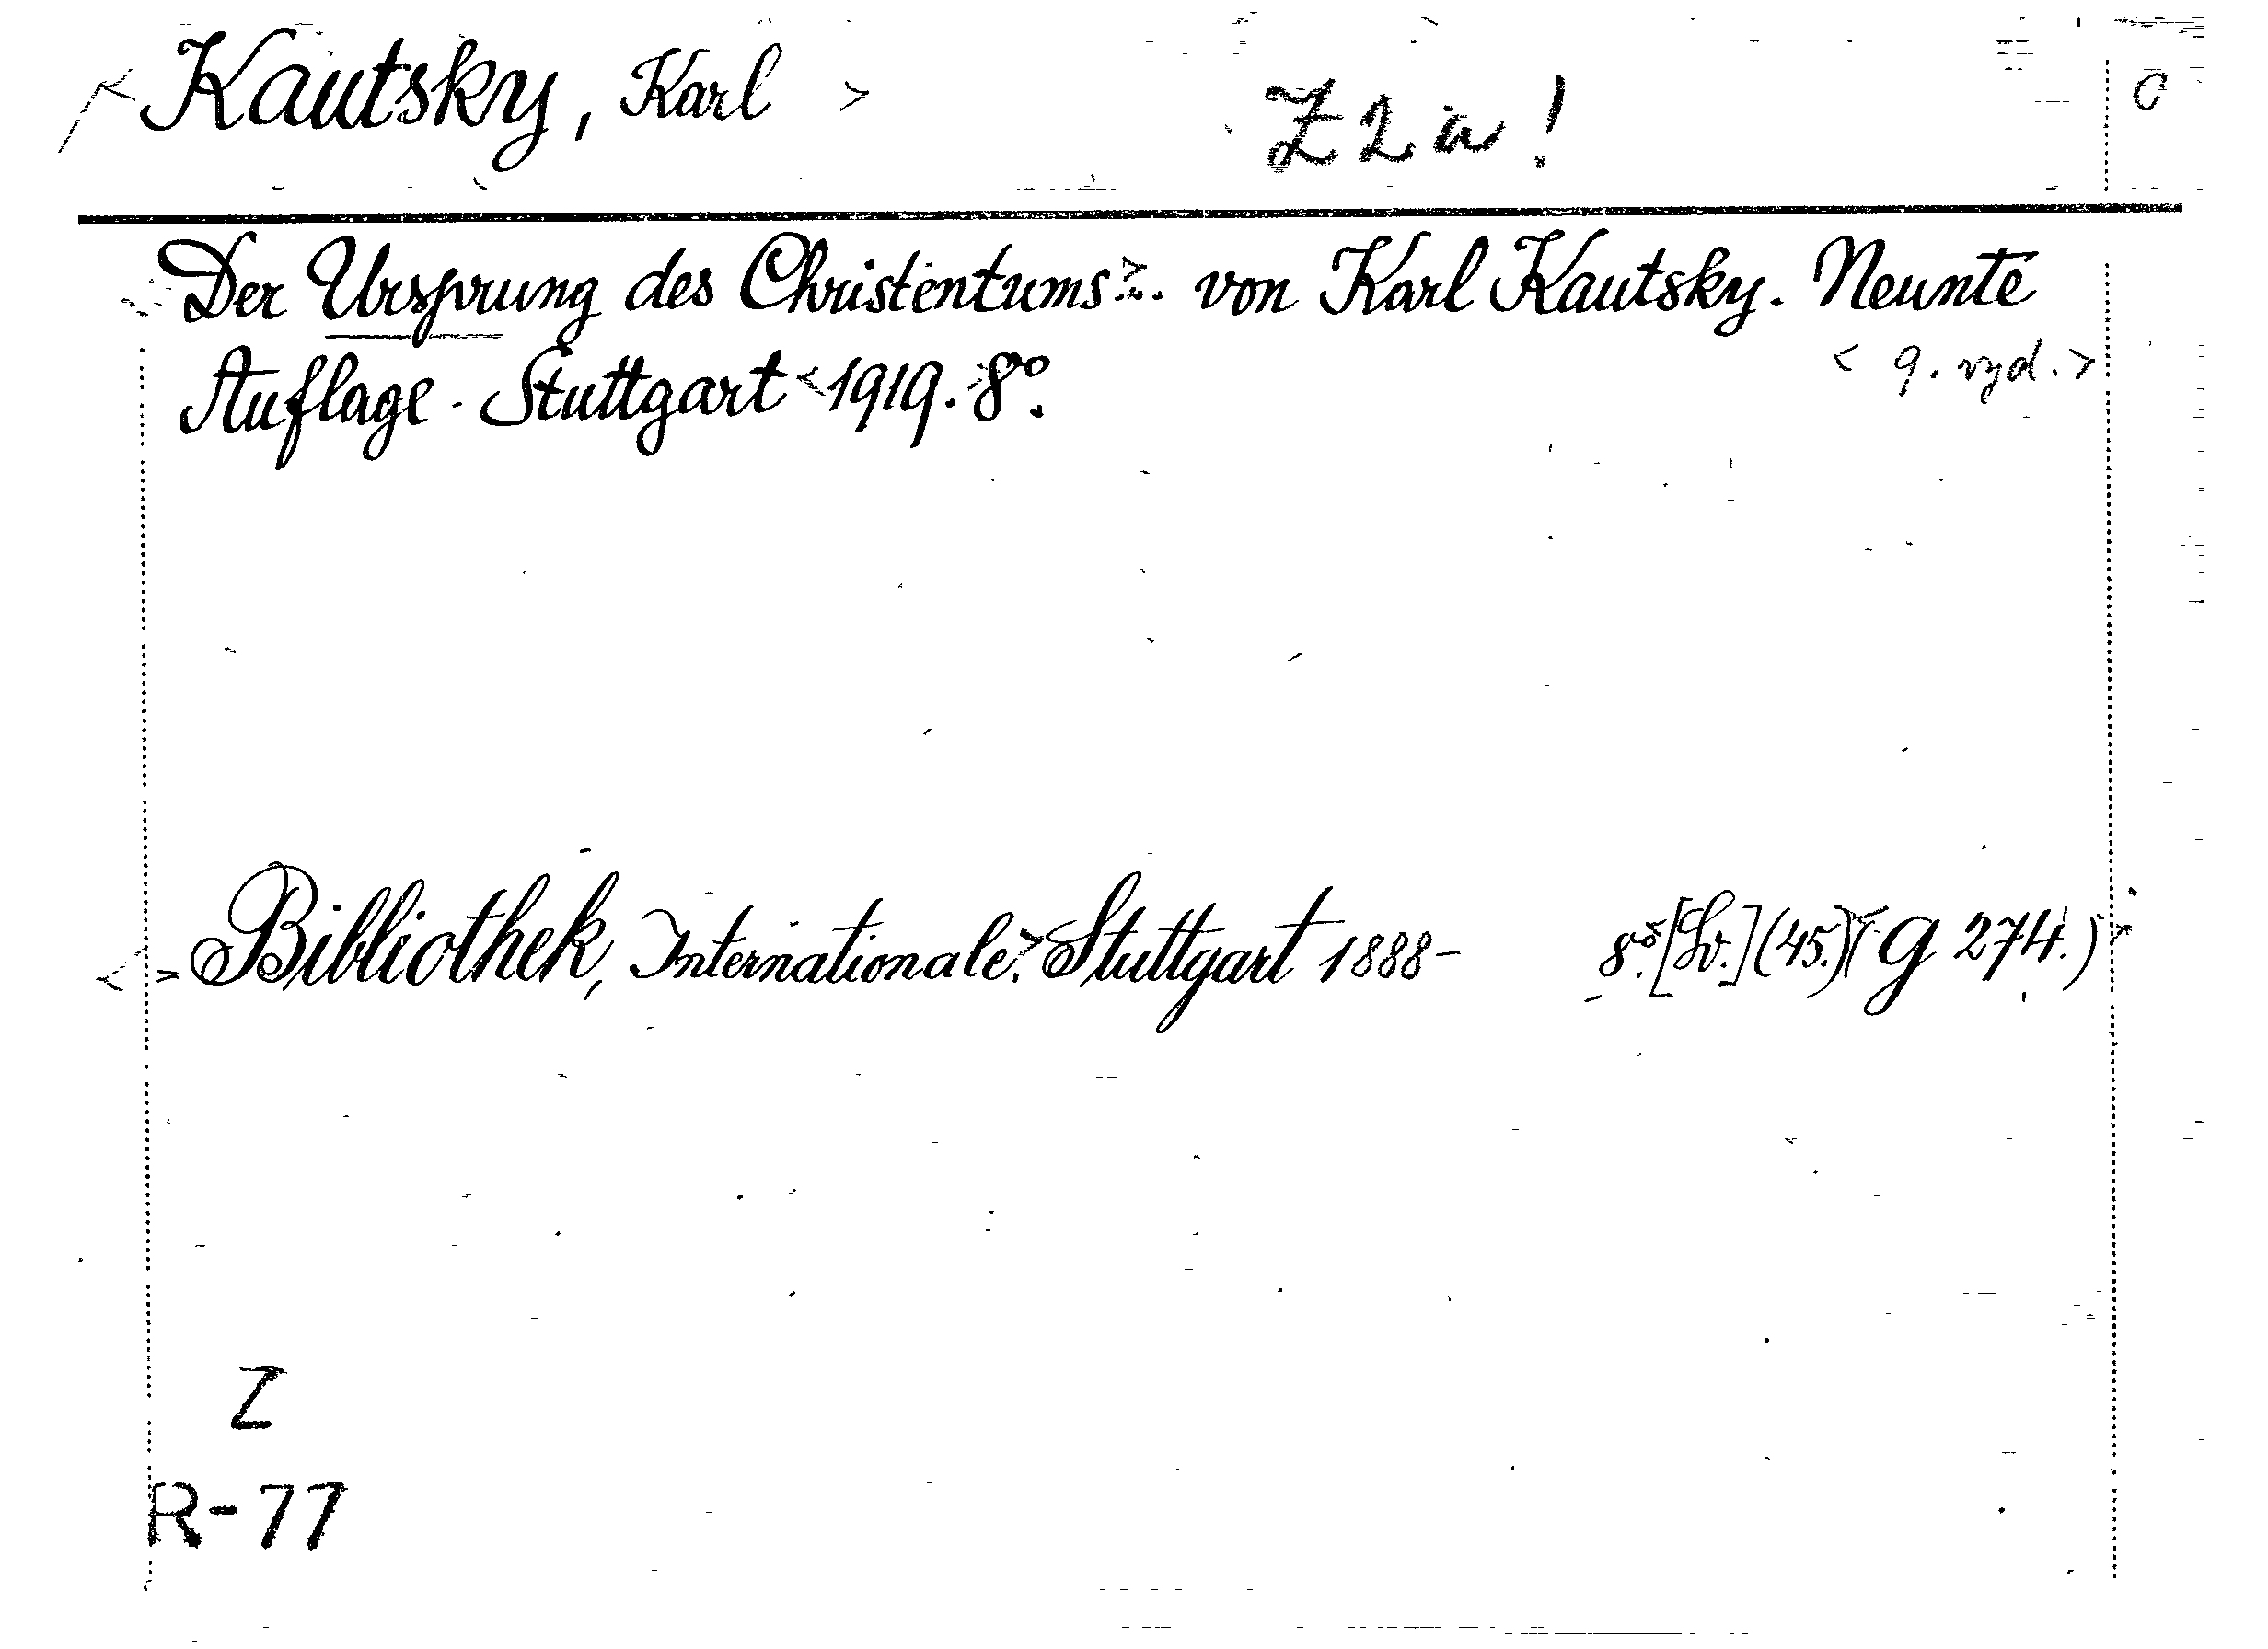 Kautsky, Karl > Z 2 a ! C
Der Ursprung des Christentums>... von Karl Kautsky. Neunte
< 9. vyd. >
Auflage. Stuttgart < 1919. 8°.
Bibliothek, Internationale. > Stuttgart 1888- 8°. [Sv.] (45.) (G 274.)
Z
R-77